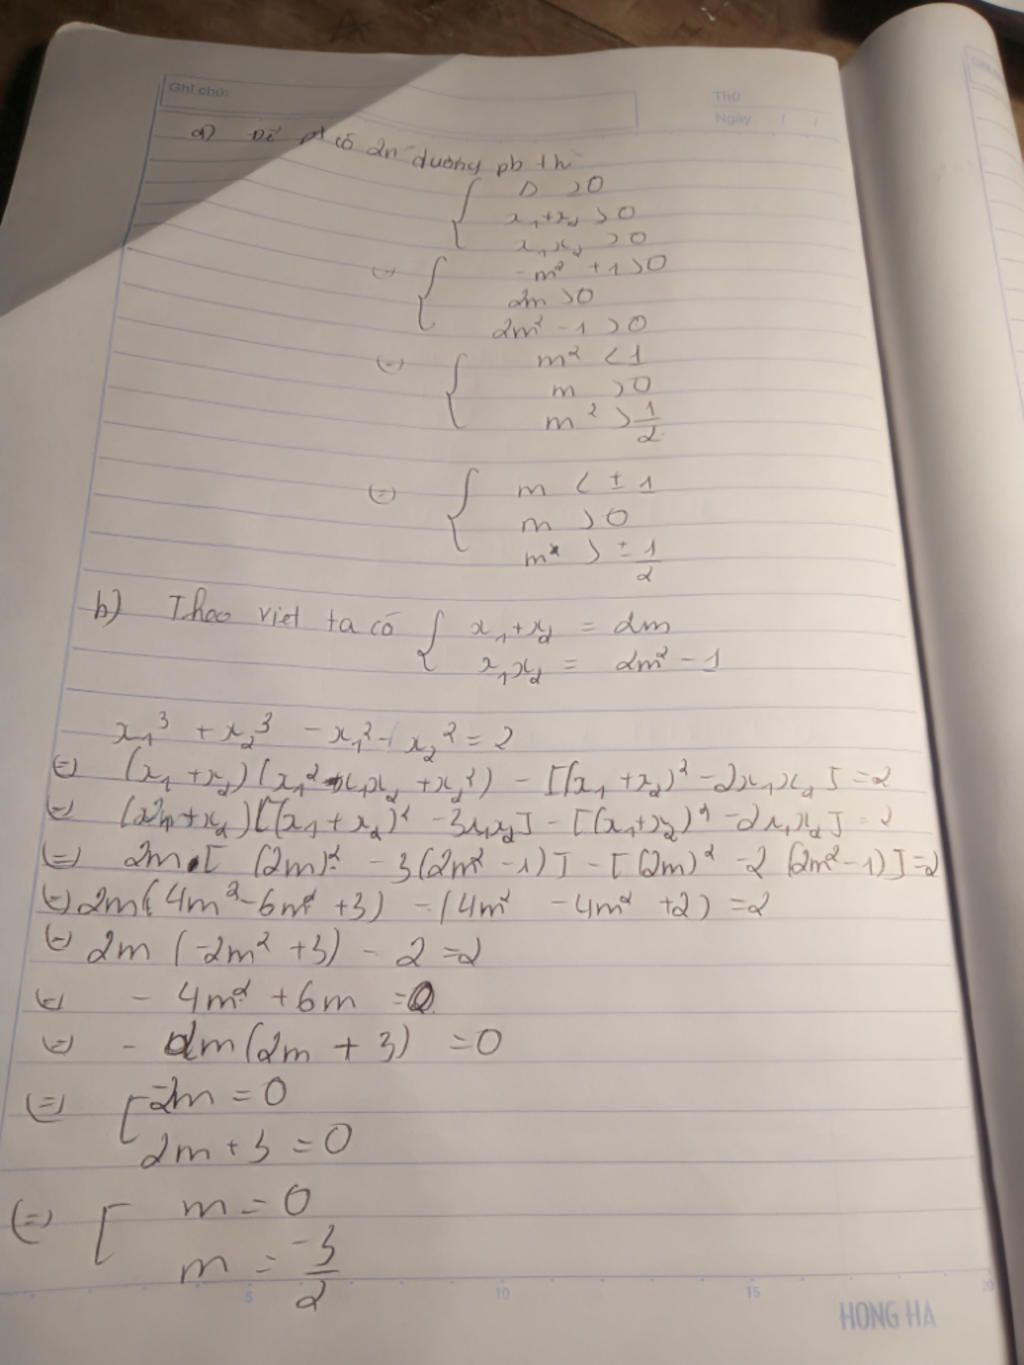 Ghi chú:
Thứ
Ngày / /
a) Để pt có 2n dương pb thì
{ Δ >0
x₁+x₂ >0
x₁x₂ >0
(=) { -m² +1>0
2m >0
2m² -1 >0
(=) { m² <1
m >0
m² > 1/2
(=) { m < ±1
m >0
m > ± 1/2
b) Theo viet ta có { x₁+x₂ = 2m
x₁x₂ = 2m² - 1
x₁³ + x₂³ - x₁² - x₂² = 2
(=) (x₁ + x₂)(x₁² - x₁x₂ + x₂²) - [(x₁ + x₂)² - 2x₁x₂] = 2
(=) (x₁ + x₂)[(x₁ + x₂)² - 3x₁x₂] - [(x₁+x₂)² - 2x₁x₂] = 2
(=) 2m.[ (2m)² - 3(2m² - 1)] - [(2m)² - 2 (2m² - 1)] = 2
(=) 2m(4m² - 6m² + 3) - (4m² - 4m² + 2) = 2
(=) 2m (-2m² + 3) - 2 = 2
(=) - 4m² + 6m = 0
(=) - 2m(2m + 3) = 0
(=) [ -2m = 0
2m + 3 = 0
(=) [ m = 0
m = -3/2
5 10 15 20
HONG HA